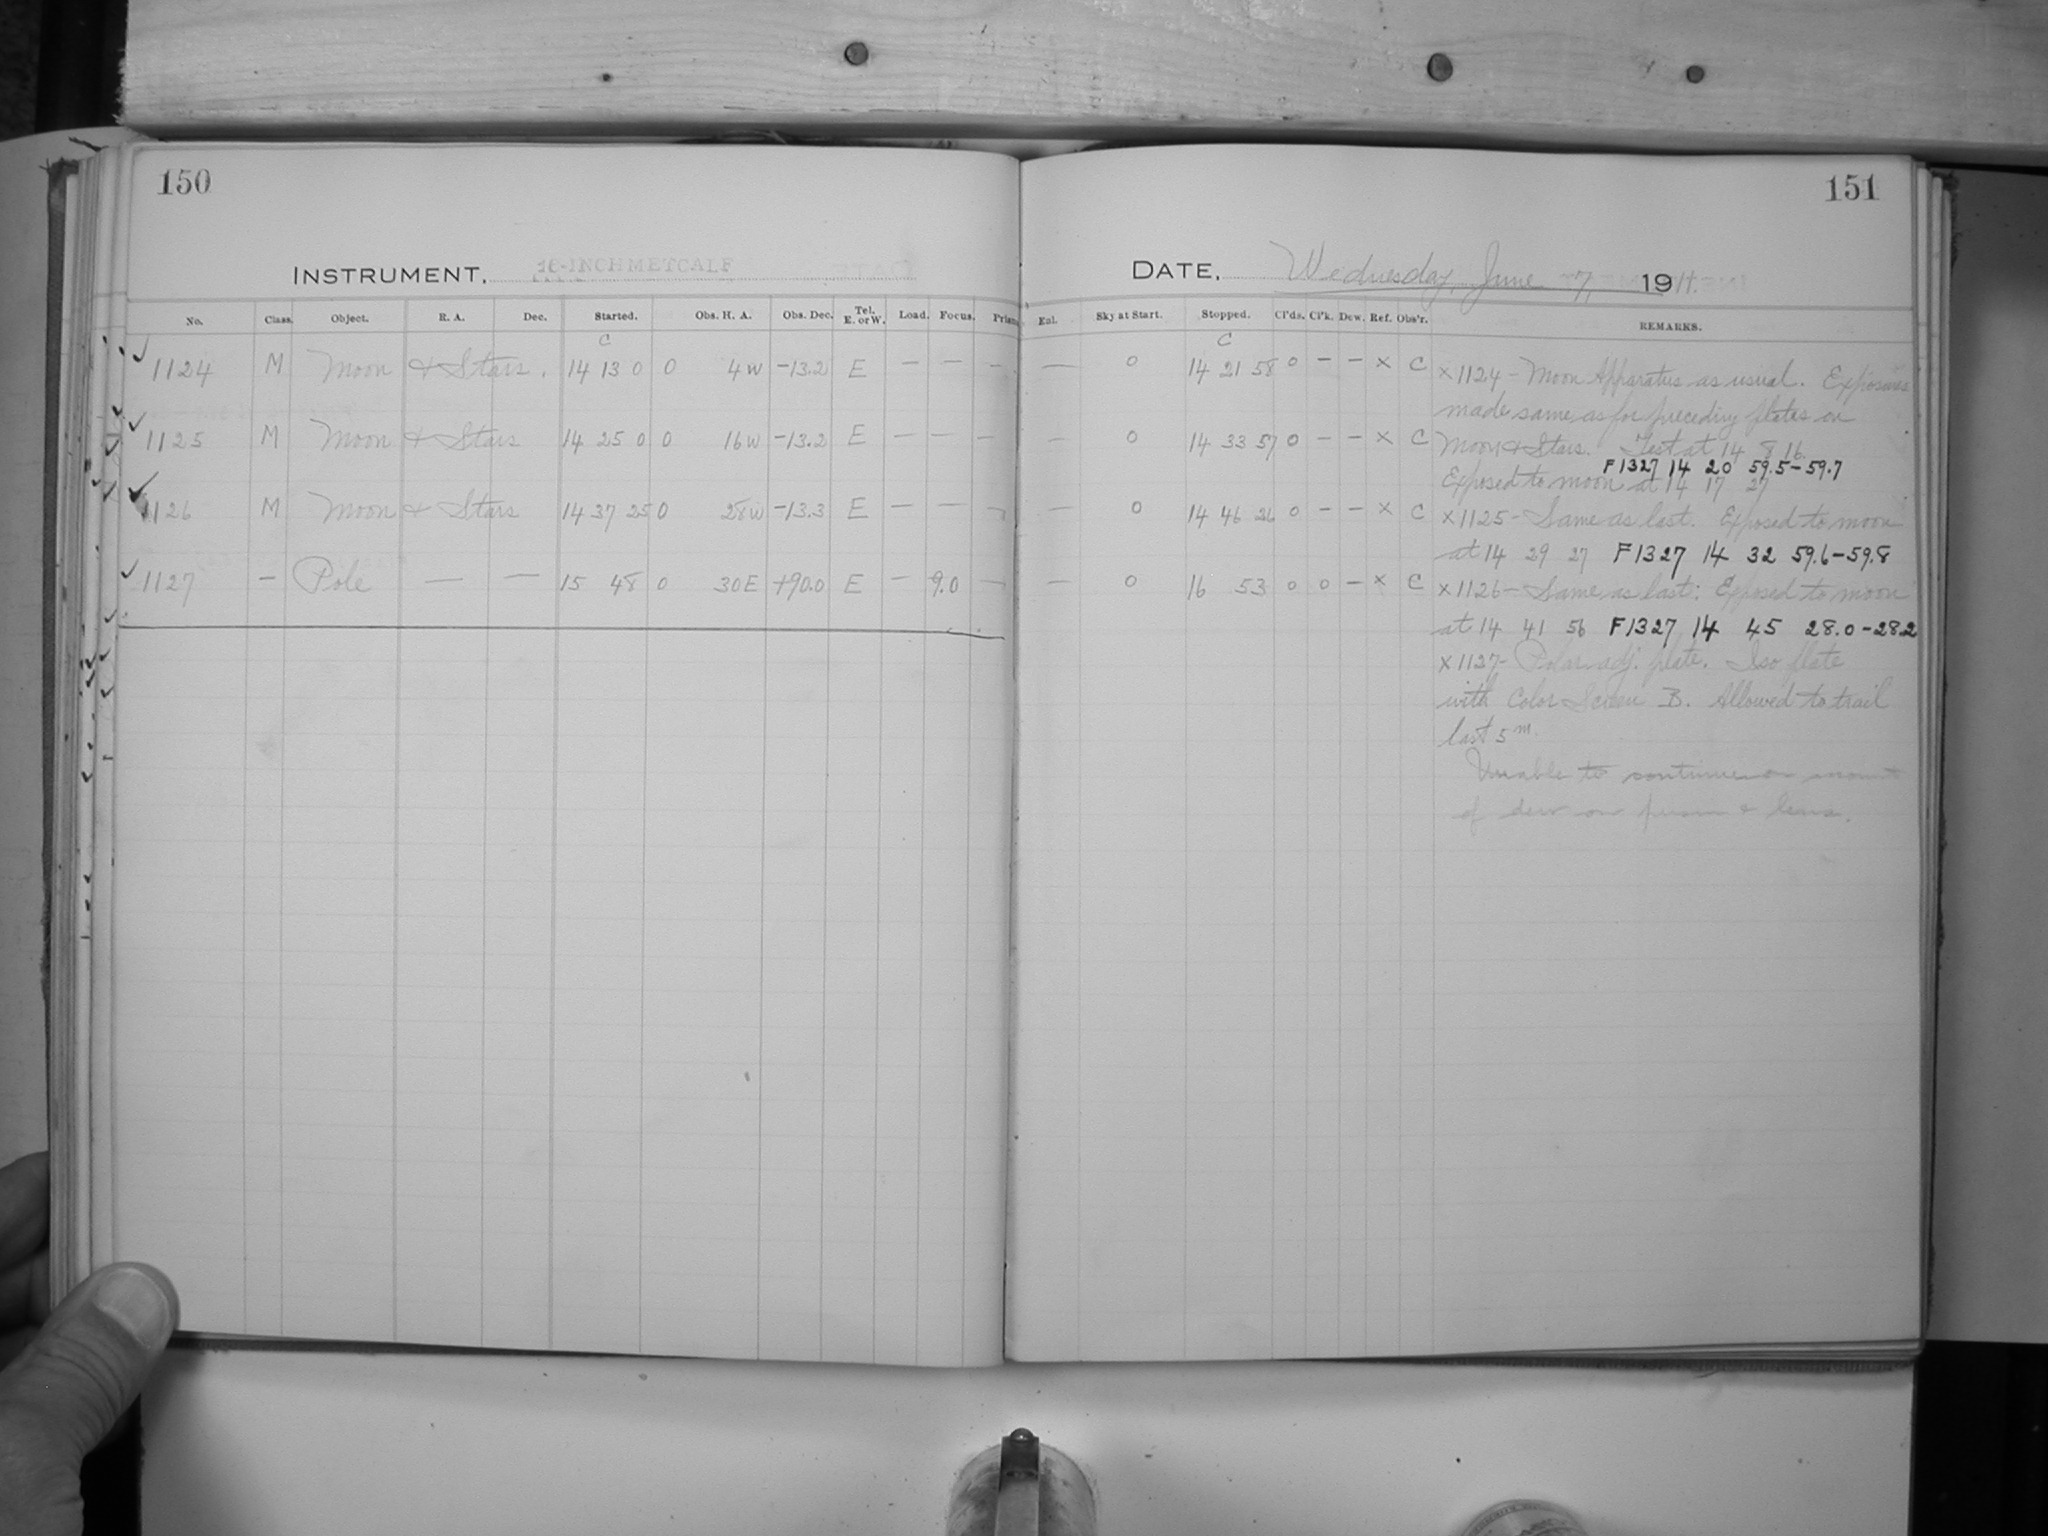 150
INSTRUMENT, 16-INCH METCALF
No. Class. Object. R. A. Dec. Started. Obs. H. A. Obs. Dec. Tel. E. or W. Load. Focus. Prism
C
1124 M Moon & Stars. 14 13 0 0 4 W -13.2 E — — —
1125 M Moon & Stars 14 25 0 0 16 W -13.2 E — — —
1126 M Moon & Stars 14 37 25 0 28 W -13.3 E — — —
1127 — Pole — — 15 48 0 30 E +90.0 E — 9.0 —
151
DATE, Wednesday, June 7, 1911.
Enl. Sky at Start. Stopped. Cl'ds. Cl'k. Dew. Ref. Obs'r. REMARKS.
C
— 0 14 21 58 0 — — × C
— 0 14 33 57 0 — — × C
— 0 14 46 26 0 — — × C
— 0 16 53 0 0 — × C
×1124 - Moon Apparatus as usual. Exposures
made same as for preceding plates on
Moon & Stars. Test at 14 8 16.
F1327 14 20 59.5-59.7
Exposed to moon at 14 17 27
×1125 - Same as last. Exposed to moon
at 14 29 27 F1327 14 32 59.6-59.8
×1126 - Same as last: Exposed to moon
at 14 41 56 F1327 14 45 28.0-28.2
×1127- Polar adj. plate. Iso plate
with Color Screen B. Allowed to trail
last 5m.
Unable to continue on
of dew on prism & lens.